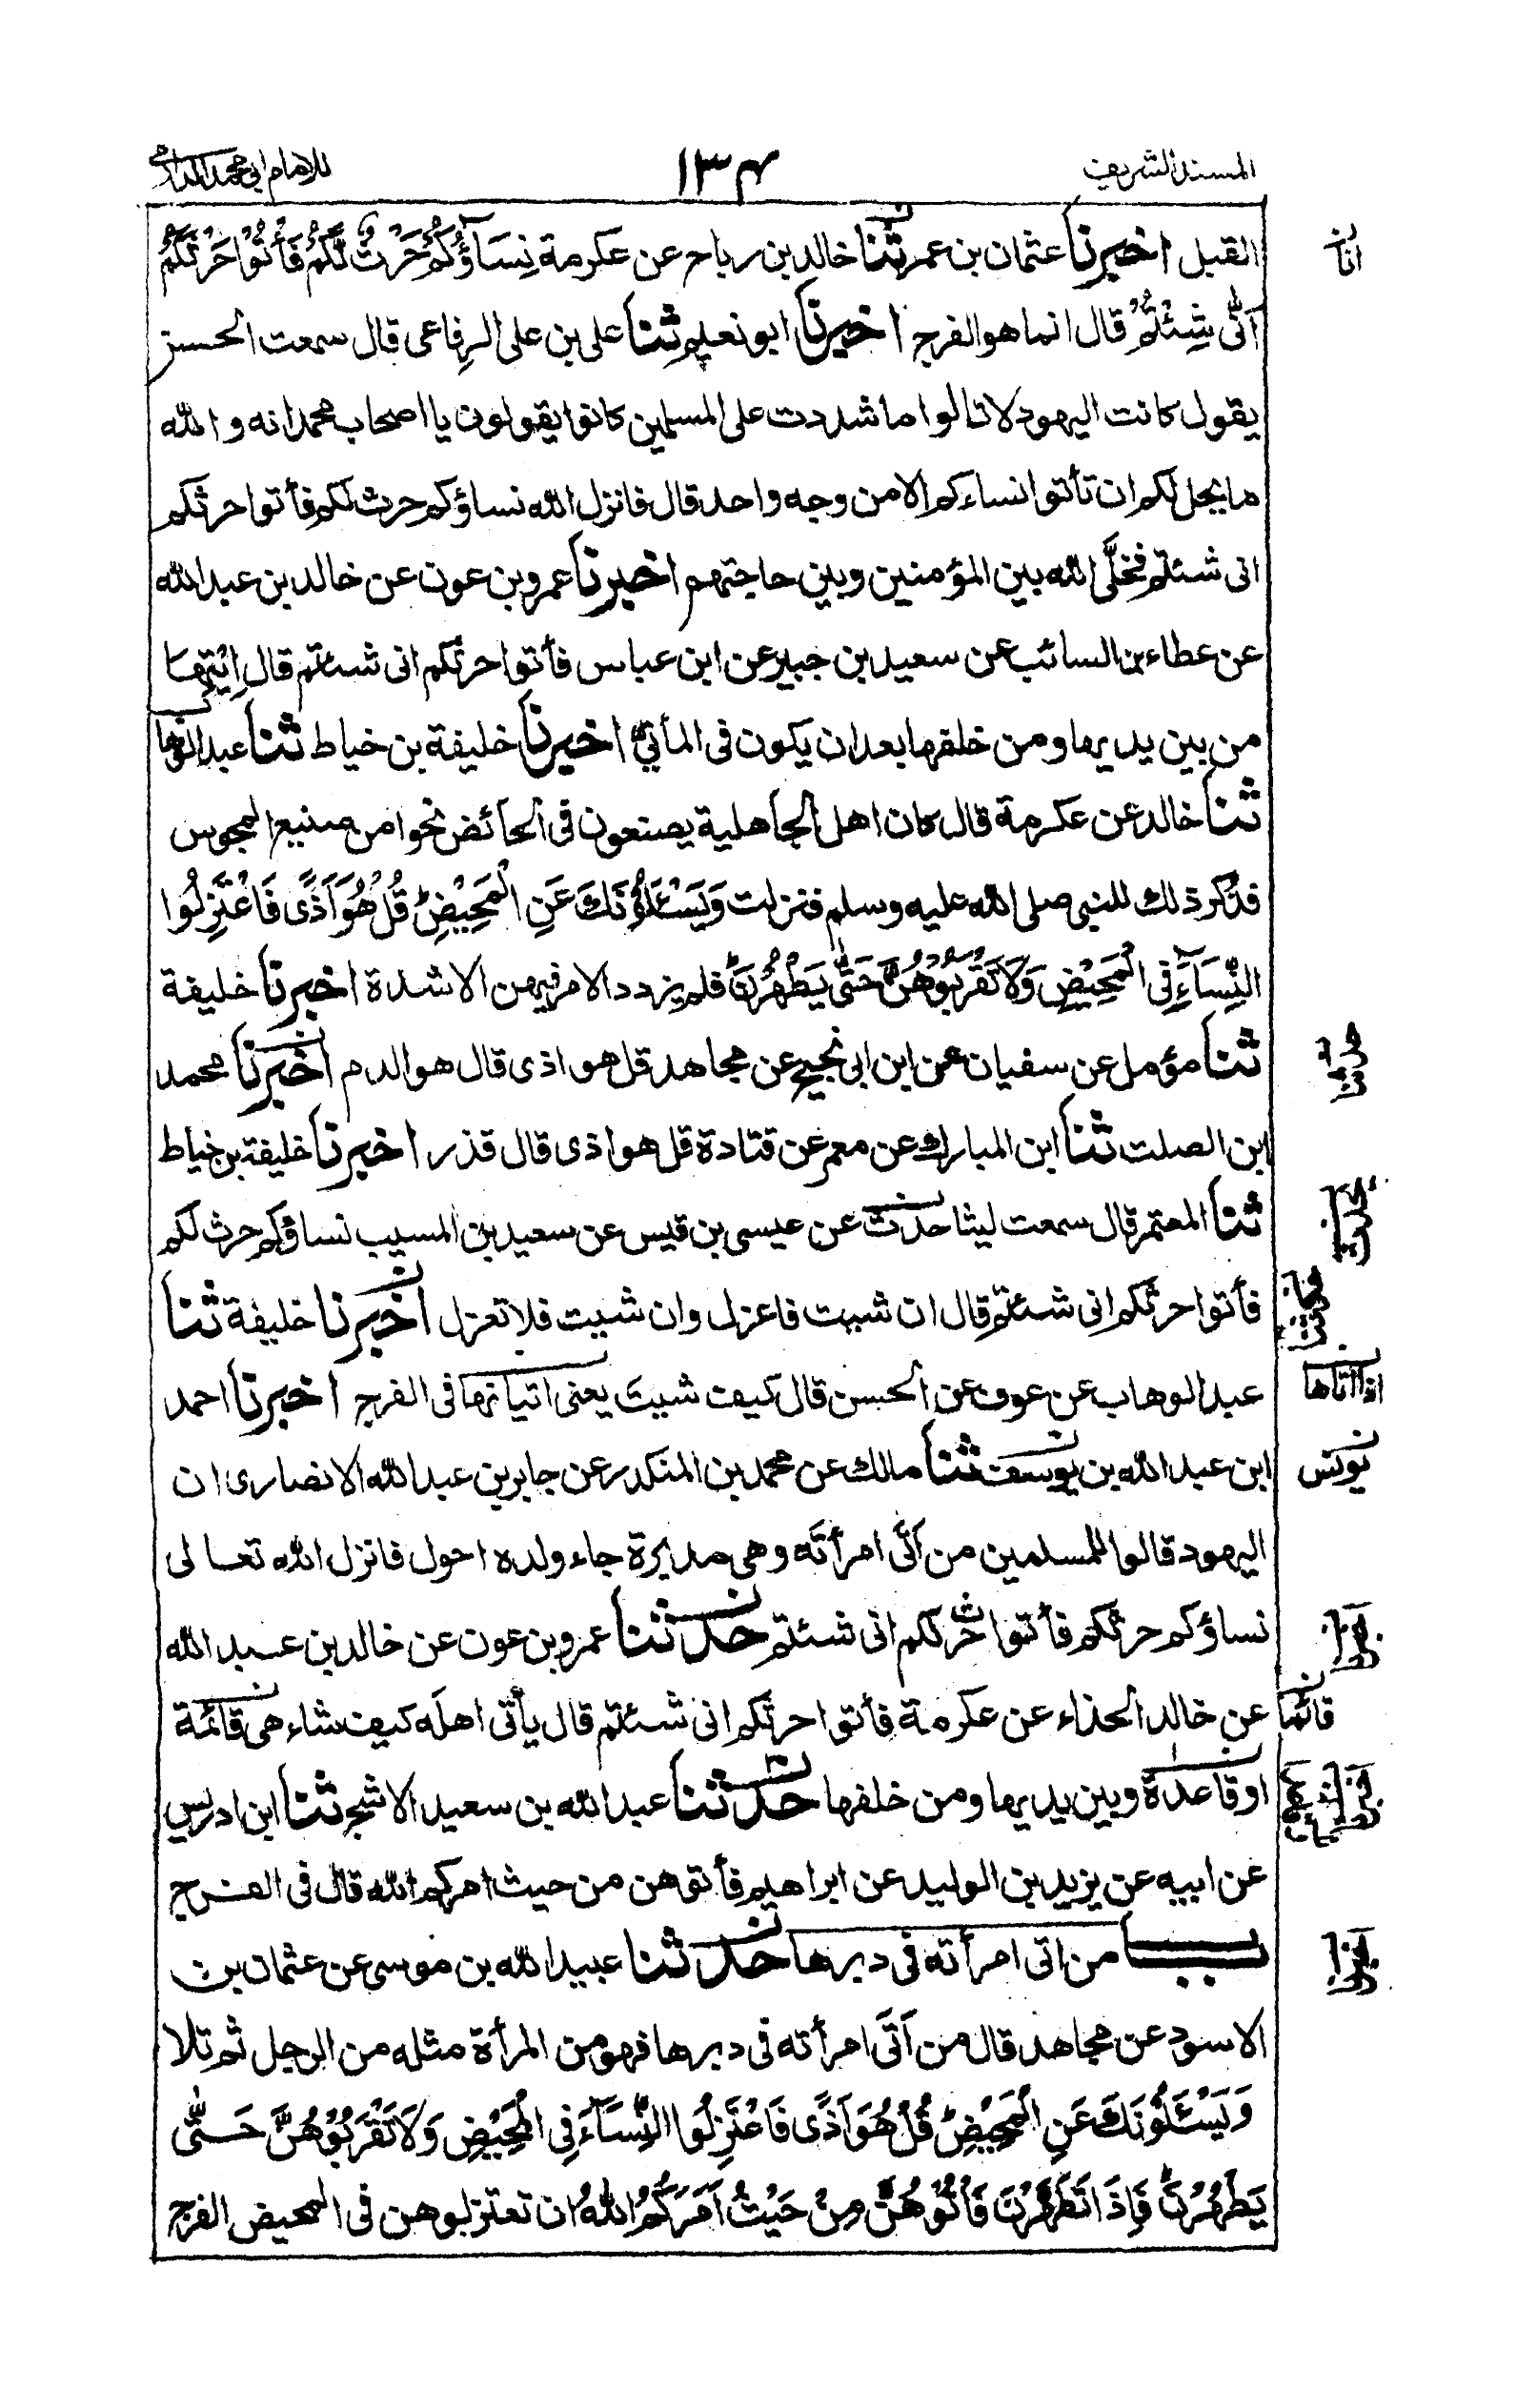 المسند الشريف ١٣٤ للامام ابي محمد الدارمي
القبل اخبرنا عثمان بن عمر ثنا خالد بن رباح عن عكرمة نِسَآؤُكُمْ حَرْثٌ لَّكُمْ فَأْتُوْا حَرْثَكُمْ
اَنّٰى شِئْتُمْ قال انما هو الفرج اخبرنا ابو نعيم ثنا على بن على الرفاعى قال سمعت الحسن
يقول كانت اليهود لا تالوا ما شددت على المسلمين كانوا يقولون يا اصحاب محمد انه والله
ما يحل لكم ان تأتوا نساءكم الا من وجه واحد قال فانزل الله نساؤكم حرث لكم فأتوا حرثكم
انى شئتم فخلَّى الله بين المؤمنين وبين حاجتهم اخبرنا عمرو بن عون عن خالد بن عبدالله
عن عطاء بن السائب عن سعيد بن جبير عن ابن عباس فأتوا حرثكم انى شئتم قال اِئْتِهَا
من بين يديها ومن خلفها بعد ان يكون فى المأتى اخبرنا خليفة بن خياط ثنا عبدالوهاب
ثنا خالد عن عكرمة قال كان اهل الجاهلية يصنعون فى الحائض نحوا من صنيع المجوس
فذكر ذلك للنبى صلى الله عليه وسلم فنزلت وَيَسْئَلُوْنَكَ عَنِ الْمَحِيْضِ قُلْ هُوَ اَذًى فَاعْتَزِلُوا
النِّسَآءَ فِى الْمَحِيْضِ وَلَا تَقْرَبُوْهُنَّ حَتّٰى يَطْهُرْنَ فلم يزدد الامر فيهن الا شدة اخبرنا خليفة
ثنا مؤمل عن سفيان عن ابن ابى نجيح عن مجاهد قل هو اذى قال هو الدم اخبرنا محمد
ابن الصلت ثنا ابن المبارك عن معمر عن قتادة قل هو اذى قال قذر اخبرنا خليفة بن خياط
ثنا المعتمر قال سمعت ليثا حدث عن عيسى بن قيس عن سعيد بن المسيب نساؤكم حرث لكم
فأتوا حرثكم انى شئتم قال ان شيت فاعزل وان شيت فلا تعزل اخبرنا خليفة ثنا
عبدالوهاب عن عوف عن الحسن قال كيف شيت يعنى اتيانها فى الفرج اخبرنا احمد
اذا اتاها
ابن عبد الله بن يوسف ثنا مالك عن محمد بن المنكدر عن جابر بن عبد الله الانصارى ان
يونس
اليهود قالوا للمسلمين من اَتَى امرأتَه وهى مدبرة جاء ولده احول فانزل الله تعالى
نساؤكم حرثكم فأتوا حرثكم انى شئتم حدثنا عمرو بن عون عن خالد بن عبد الله
عن خالد الحذاء عن عكرمة فأتوا حرثكم انى شئتم قال يأتى اهلَه كيف شاء هى قائمة
قائما
او قاعدة وبين يديها ومن خلفها حدثنا عبد الله بن سعيد الاشج ثنا ابن ادريس
عن ابيه عن يزيد بن الوليد عن ابراهيم فأتوهن من حيث امركم الله قال فى الفرج
باب من اتى امرأته فى دبرها حدثنا عبيد الله بن موسى عن عثمان بن
الاسود عن مجاهد قال من اَتَى امرأته فى دبرها فهو من المرأة مثله من الرجل ثم تلا
وَيَسْئَلُوْنَكَ عَنِ الْمَحِيْضِ قُلْ هُوَ اَذًى فَاعْتَزِلُوا النِّسَآءَ فِى الْمَحِيْضِ وَلَا تَقْرَبُوْهُنَّ حَتّٰى
يَطْهُرْنَ فَاِذَا تَطَهَّرْنَ فَأْتُوْهُنَّ مِنْ حَيْثُ اَمَرَكُمُ اللّٰهُ ان تعتزلوهن فى المحيض الفرج